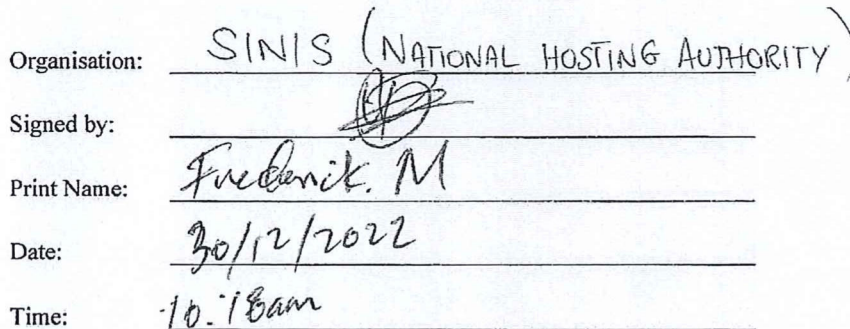 Organisation: SINIS (NATIONAL HOSTING AUTHORITY)
Signed by:
Print Name: Frederick. M
Date: 30/12/2022
Time: 10.18am